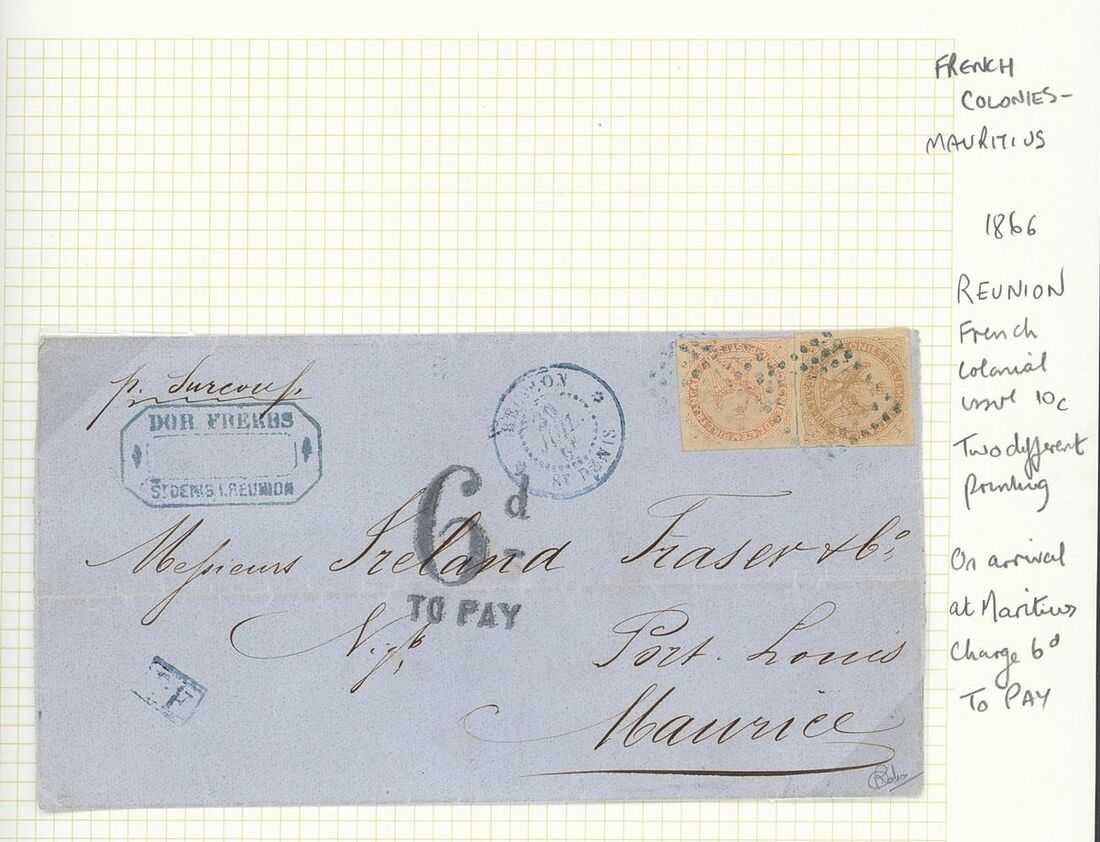 FRENCH
COLONIES-
MAURITIUS
1866
REUNION
French
colonial
issue 10c
Two different
printing
On arrival
at Maritius
Charge 6d
To PAY
p. Surcouf
DOR FRERES
ST DENIS I. REUNION
REUNION
ST DENIS
6d
TO PAY
Messieurs Ireland Fraser & Co
Port. Louis
Maurice